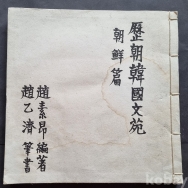 歷朝韓國文苑
朝鮮篇
趙素昂 編著
趙乙濟 筆書